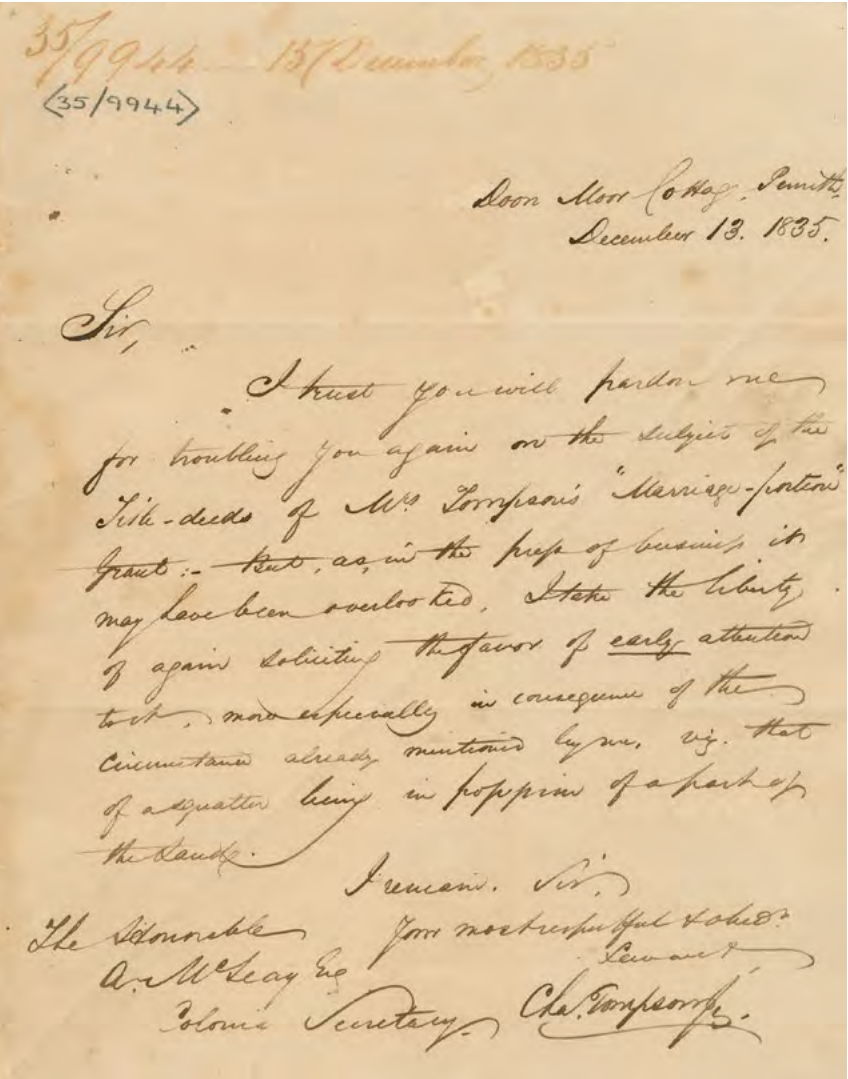 35/9944 — 15 December 1835
(35/9944)
Doon Moor Cottag, Penrith,
December 13. 1835.
Sir,
I trust you will pardon me
for troubling you again on the subject of the
Title-deeds of Mrs Tompson's "Marriage-portion"
Grant:- But, as, in the press of business it
may have been overlooked, I take the liberty
of again soliciting the favor of early attention
to it, more especially in consequence of the
circumstance already mentioned by me, viz. that
of a squatter being in possession of a part of
the Land.
I remain, Sir,
Your most respectful & obedt
Servant,
The Honorable
A. McLeay Esq
Colonial Secretary.
Chas. Tompson Jr.